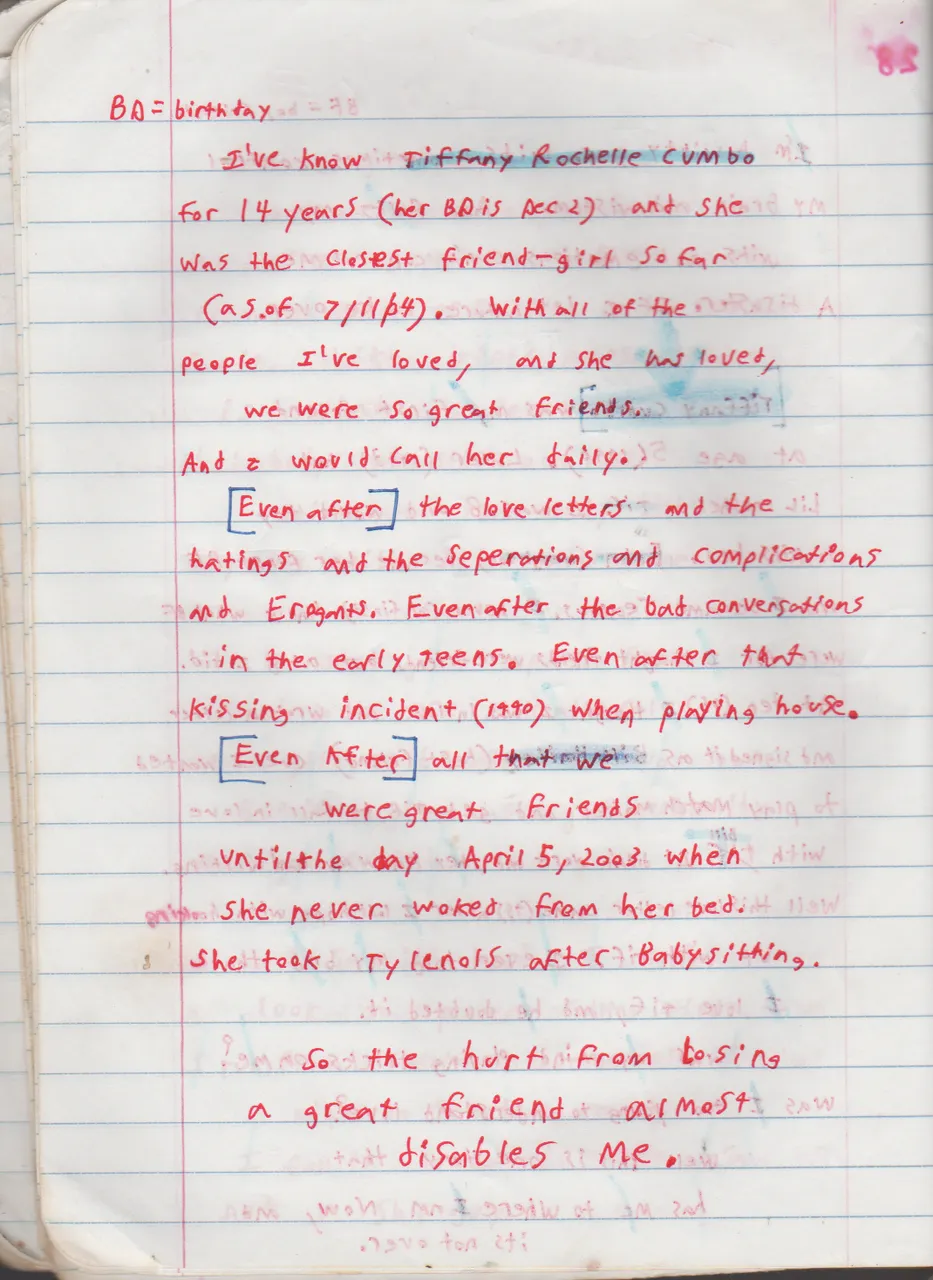 BD = birthday
I've know Tiffany Rochelle Cumbo
for 14 years (her BD is Dec 2) and she
was the closest friend-girl so far
(as.of 7/11/04). With all of the
people I've loved, and she has loved,
we were so great friends.
And I would call her daily.
[Even after] the love letters and the
hatings and the seperations and complications
and Erogants. Even after the bad conversations
in the early teens. Even after that
kissing incident (1990) when playing house.
[Even After] all that we
were great friends
until the day April 5, 2003 when
she never woked from her bed.
She took Tylenols after Babysithing.
So the hurt from losing
a great friend almost
disables me.